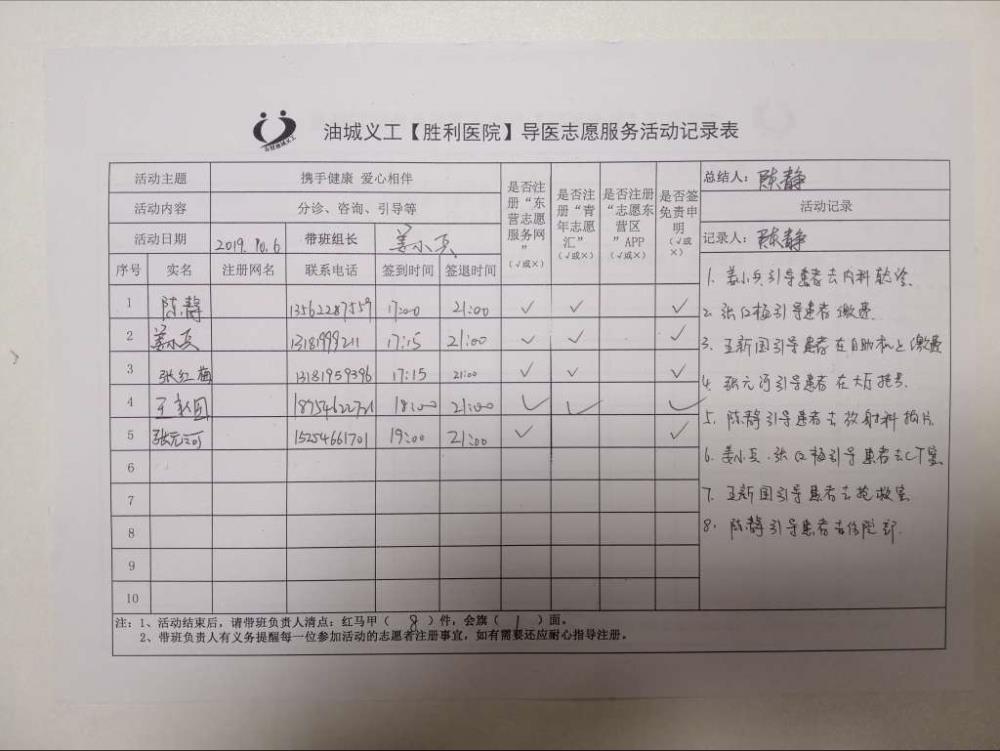 油城义工【胜利医院】导医志愿服务活动记录表
活动主题 携手健康 爱心相伴
活动内容 分诊、咨询、引导等
活动日期 2019.10.6 带班组长 姜小兵
序号 实名 注册网名 联系电话 签到时间 签退时间 是否注册“东营志愿服务网”(√或×) 是否注册“青年志愿汇”(√或×) 是否注册“志愿东营区”APP(√或×) 是否签免责申明(√或×)
1 陈静 13562287559 17:00 21:00 √ √ √
2 姜小兵 13181999211 17:15 21:00 √ √ √
3 张红梅 13181959396 17:15 21:00 √ √ √
4 王新国 18:00 21:00 √ √ √
5 张元河 15254661701 19:00 21:00 √ √
6
7
8
9
10
总结人：陈静
活动记录
记录人：陈静
1. 姜小兵引导患者去内科就诊.
2. 张红梅引导患者缴费.
3. 王新国引导患者在自助机上缴费
4. 张元河引导患者在大厅挂号.
5. 陈静引导患者去放射科拍片.
6. 姜小兵.张红梅引导患者去CT室
7. 王新国引导患者去抢救室
8. 陈静引导患者去住院部.
注：1、活动结束后，请带班负责人清点：红马甲（ 8 ）件，会旗（ 1 ）面。
2、带班负责人有义务提醒每一位参加活动的志愿者注册事宜，如有需要还应耐心指导注册。